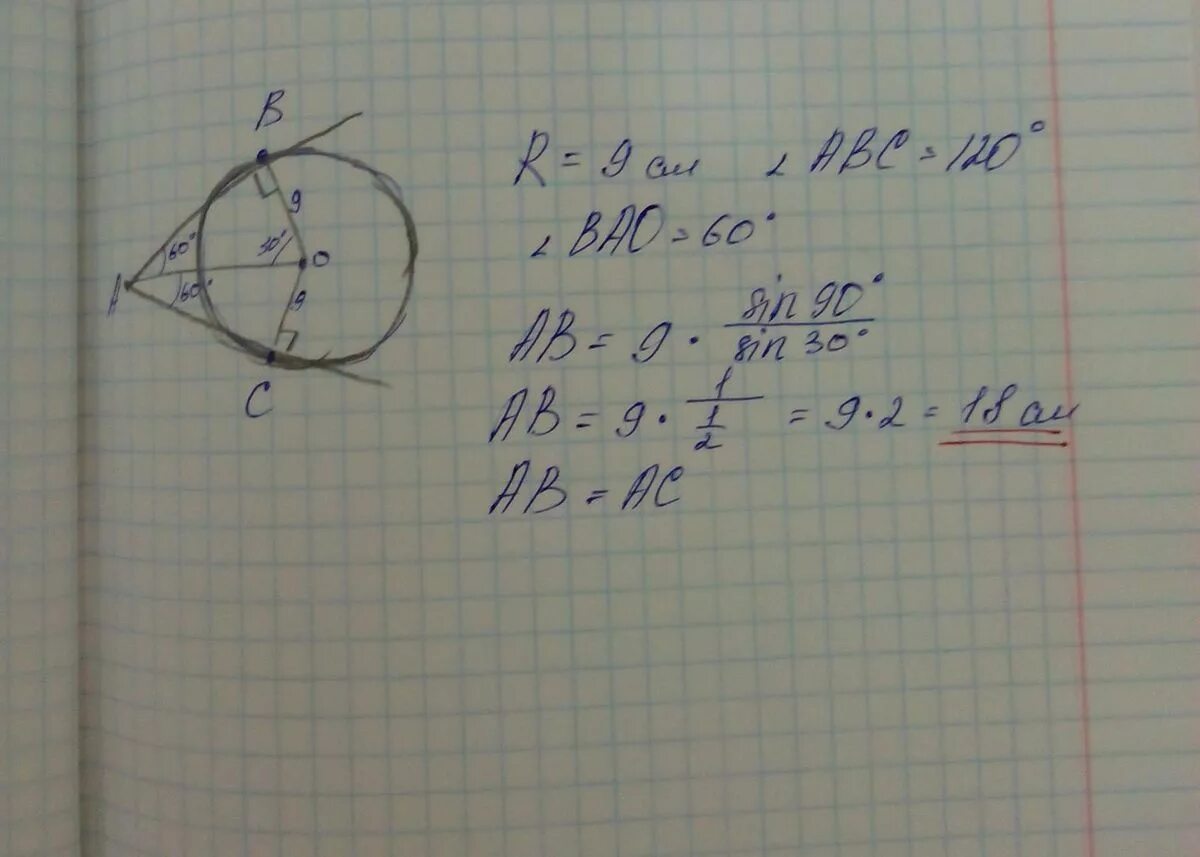 B
9
60°
30°
O
A
60°
9
C
R = 9 см ∠ ABC = 120°
∠ BAO = 60°
AB = 9 · sin 90° / sin 30°
AB = 9 · 1 / 1/2 = 9 · 2 = 18 см
AB = AC